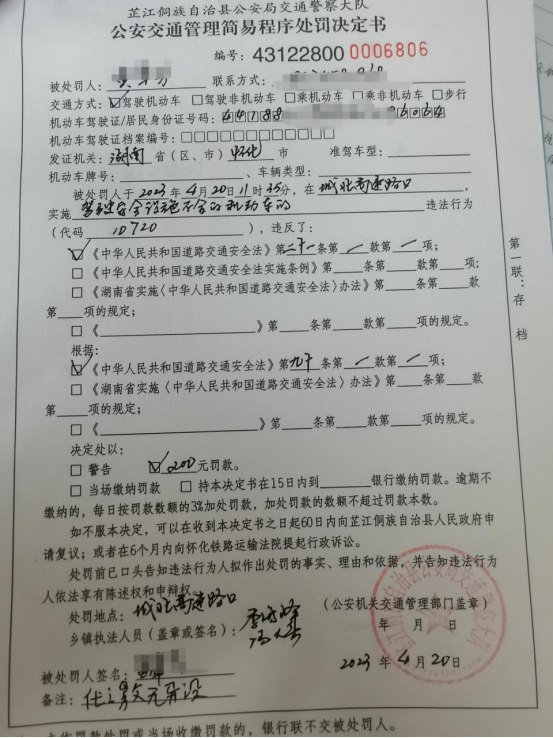 芷江侗族自治县公安局交通警察大队
公安交通管理简易程序处罚决定书
编号：43122800 0006806
被处罚人： 联系方式：
交通方式：☑驾驶机动车 □驾驶非机动车 □乘机动车 □乘非机动车 □步行
机动车驾驶证/居民身份证号码：
机动车驾驶证档案编号：□□□□□□□□□□□□
发证机关：湖南省（区、市）怀化市 准驾车型：
机动车牌号： 、车辆类型：
被处罚人于2023年4月20日11时35分，在城北高速路口，
实施驾驶安全设施不全的机动车的违法行为
（代码 10720 ），违反了：
☑《中华人民共和国道路交通安全法》第二十一条第一款第一项；
□《中华人民共和国道路交通安全法实施条例》第 条第 款第 项；
□《湖南省实施〈中华人民共和国道路交通安全法〉办法》第 条第 款
第 项的规定；
□《 》第 条第 款第 项的规定。
根据：
☑《中华人民共和国道路交通安全法》第九十条第一款第一项；
□《湖南省实施〈中华人民共和国道路交通安全法〉办法》第 条第 款
第 项的规定；
□《 》第 条第 款第 项的规定。
决定处以：
□ 警告 ☑200元罚款。
□ 当场缴纳罚款 □ 持本决定书在15日内到 银行缴纳罚款。逾期不
缴纳的，每日按罚款数额的3%加处罚款，加处罚款的数额不超过罚款本数。
如不服本决定，可以在收到本决定书之日起60日内向芷江侗族自治县人民政府申
请复议；或者在6个月内向怀化铁路运输法院提起行政诉讼。
处罚前已口头告知违法行为人拟作出处罚的事实、理由和依据，并告知违法行为
人依法享有陈述权和申辩权。
处罚地点：城北高速路口
（公安机关交通管理部门盖章）
年 月 日
乡镇执法人员（盖章或签名）：
2023年4月20日
被处罚人签名：
备注：
第一联：存档